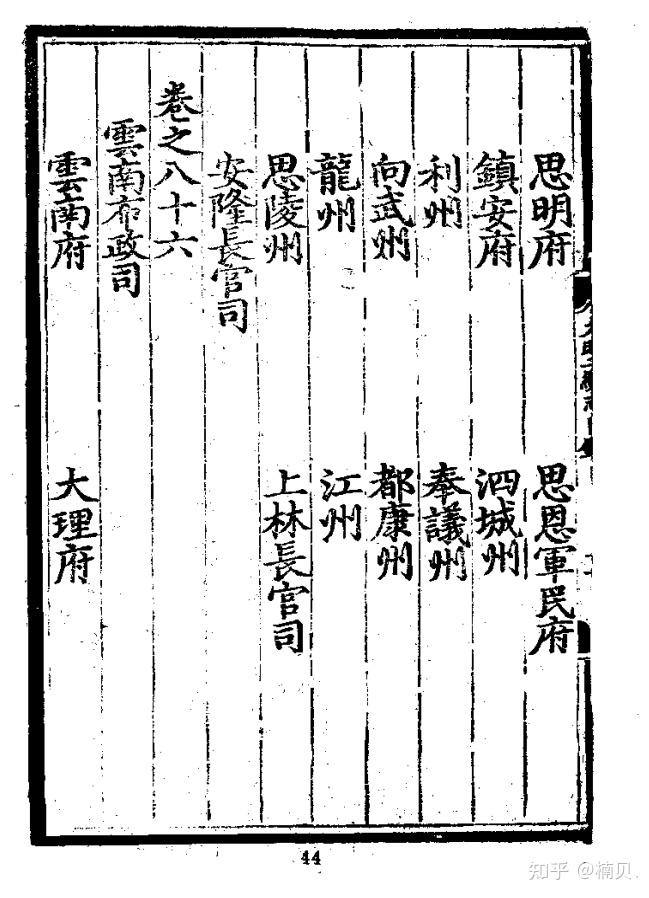 思明府 思恩軍民府
鎮安府 泗城州
利州 奉議州
向武州 都康州
龍州 江州
思陵州 上林長官司
安隆長官司
卷之八十六
雲南布政司
雲南府 大理府
44
知乎 @楠贝